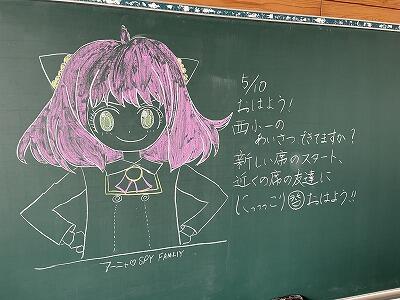 5/10
おはよう!
西小一の
あいさつできてますか?
新しい席のスタート、
近くの席の友達に
にっっっこり おはよう!!
アーニャ♡SPY FAMILY